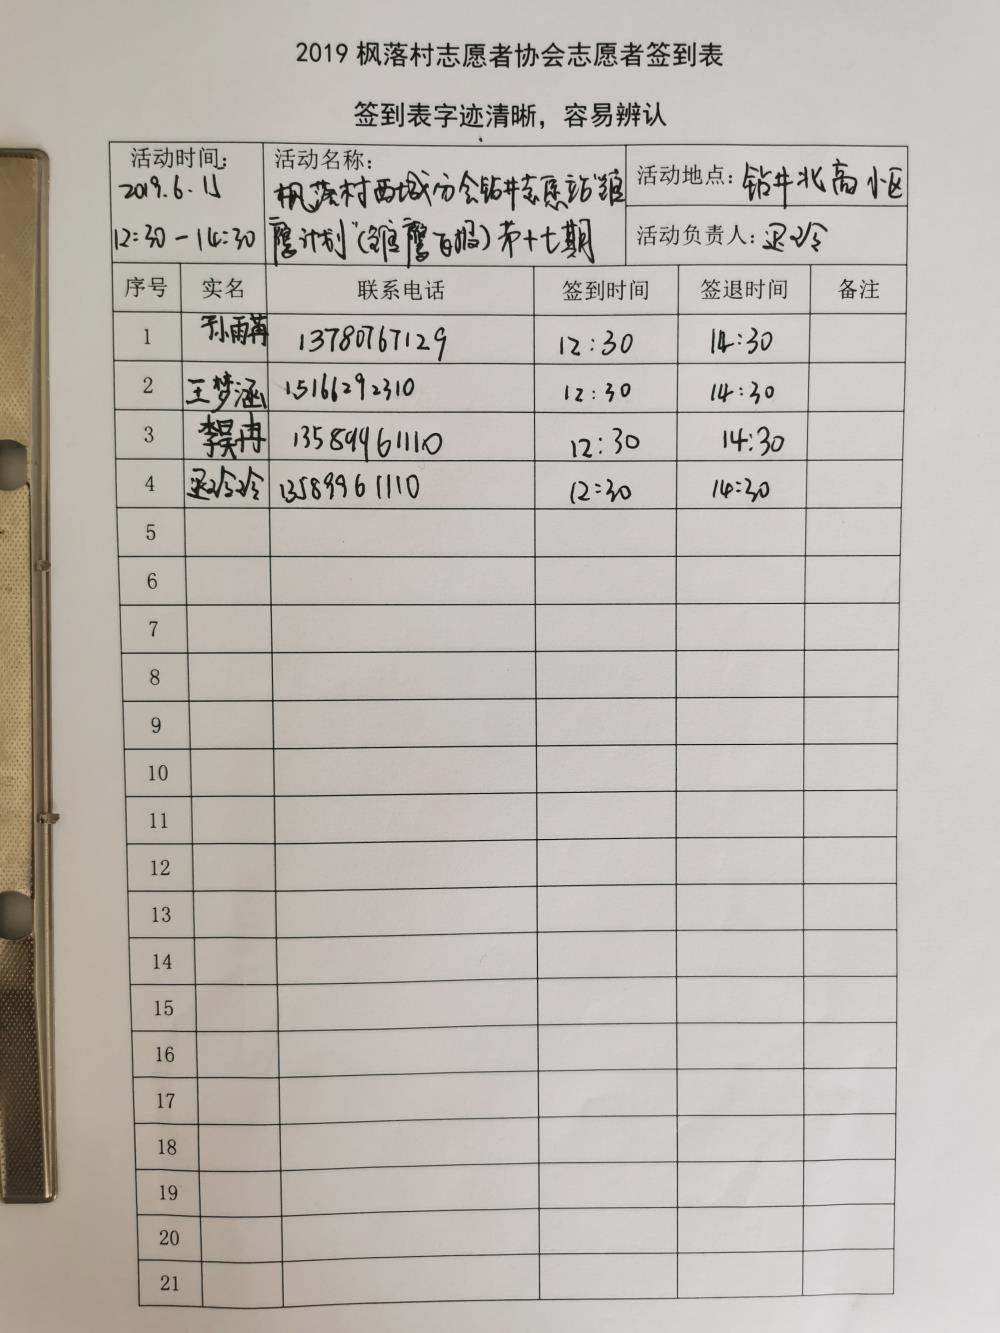 2019 枫落村志愿者协会志愿者签到表
签到表字迹清晰，容易辨认
活动时间：
2019.6.15
12:30-14:30
活动名称：
枫落村西城分会钻井志愿站“雏
鹰计划”（雏鹰百报）第十七期
活动地点：钻井北高小区
活动负责人：
序号 实名 联系电话 签到时间 签退时间 备注
1 孙雨苒 13780767129 12:30 14:30
2 王梦涵 15166292310 12:30 14:30
3 李昊冉 13589961110 12:30 14:30
4 13589961110 12:30 14:30
5
6
7
8
9
10
11
12
13
14
15
16
17
18
19
20
21